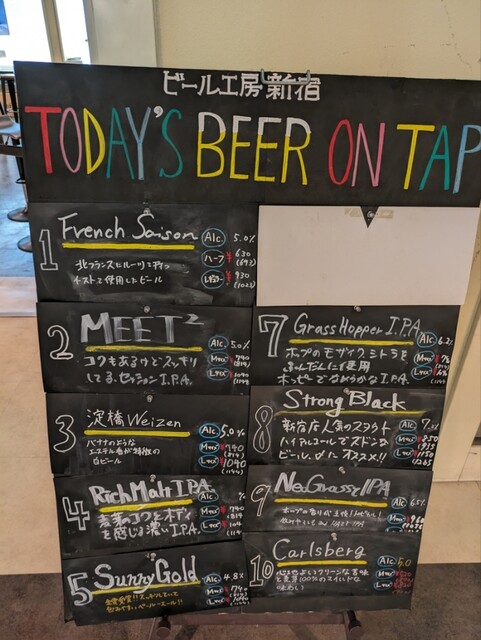 ビール工房 新宿
TODAY'S BEER ON TAP
1 French Saison Alc. 5.0%
北フランスにルーツを持つ
イーストを使用したビール
ハーフ ¥630
(693)
レギュラー ¥930
(1023)
2 MEET² Alc 5.0%
コクもあるけどスッキリ
してる、セッションI.P.A.
3 淀橋Weizen Alc 5.0%
バナナのような
エステル香が特徴の
白ビール
M ¥740
(814)
L ¥1040
(1144)
4 Rich Malt IPA
麦芽のコクとボディ
を感じる濃いI.P.A.
5 Sunny Gold Alc 4.8%
7 GrassHopper I.P.A. Alc 6.2%
ホップのモザイク、シトラを
ふんだんに使用
ホッピーでなめらかなI.P.A.
8 Strong Black Alc
新宿店人気のスタウト
ハイアルコールでズドンな
ビール好きにオススメ!!
9 NeoGrassy IPA Alc 6.5%
10 Carlsberg Alc 5.0
心地よいクリーンな苦味
と麦芽100%のスムースな
味わい